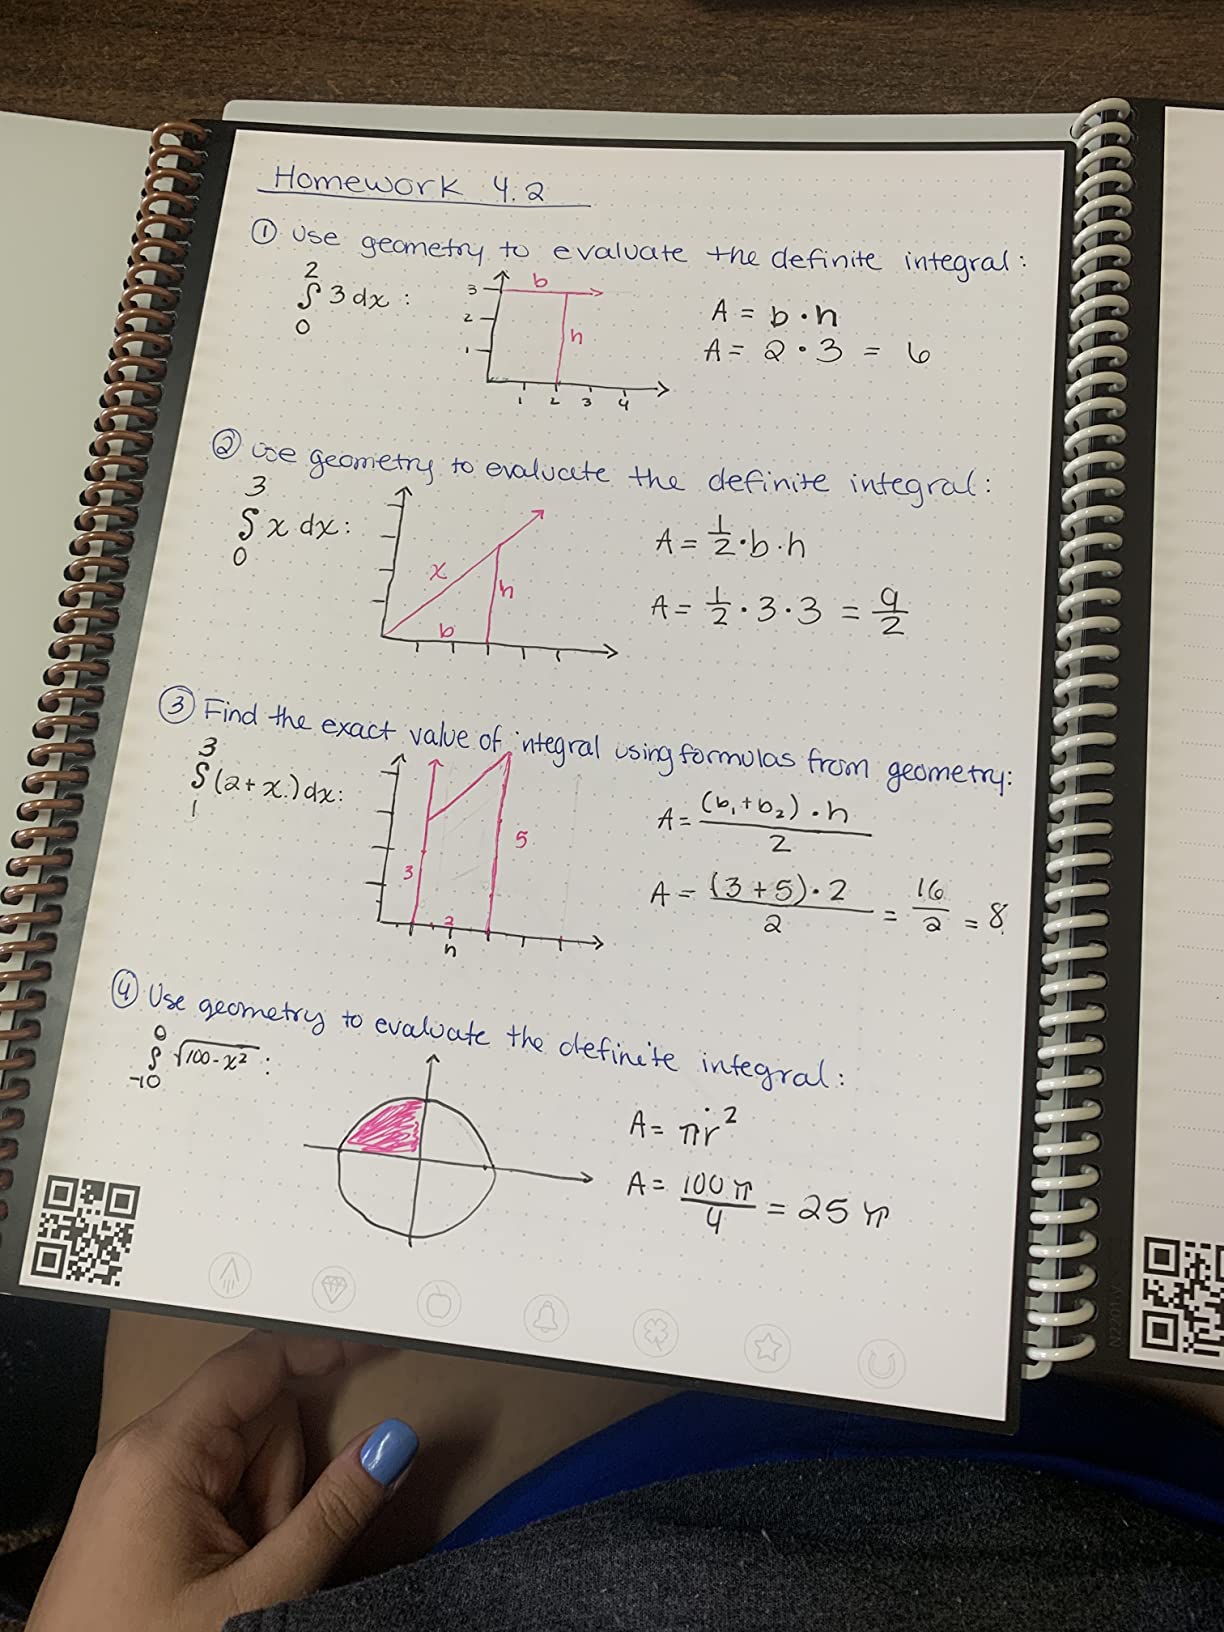 Homework 4.2
① Use geometry to evaluate the definite integral:
2
∫ 3 dx :
0
3
2
1
1 2 3 4
b
h
A = b · h
A = 2 · 3 = 6
② Use geometry to evaluate the definite integral:
3
∫ x dx :
0
x
h
b
A = 1/2 · b · h
A = 1/2 · 3 · 3 = 9/2
③ Find the exact value of integral using formulas from geometry:
3
∫ (2 + x) dx :
1
3
5
2
h
A = (b₁ + b₂) · h / 2
A = (3 + 5) · 2 / 2 = 16/2 = 8
④ Use geometry to evaluate the definite integral:
0
∫ √100 - x² :
-10
A = πr²
A = 100π/4 = 25π